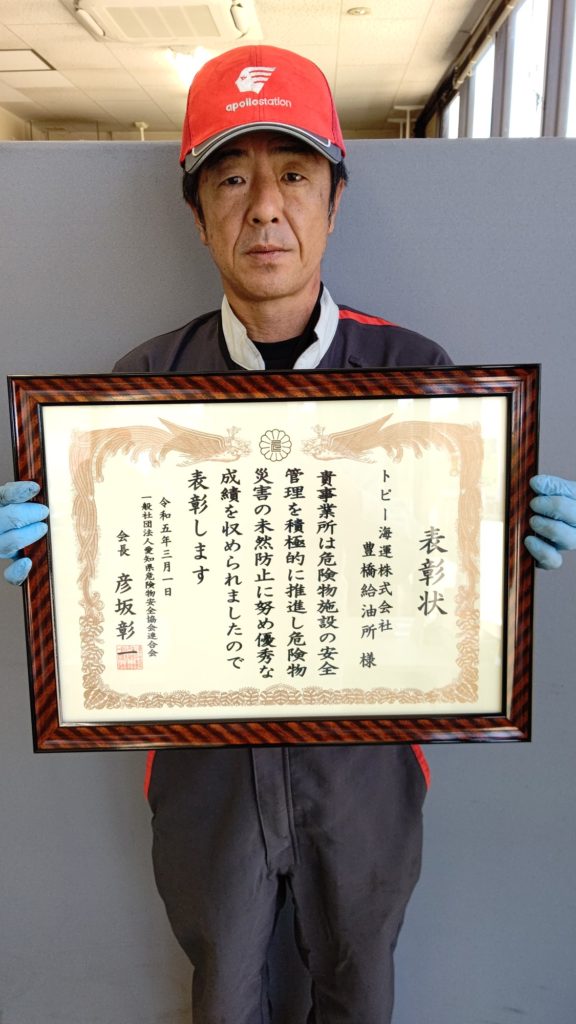 apollostation
表彰状
トピー海運株式会社
豊橋給油所 様
貴事業所は危険物施設の安全
管理を積極的に推進し危険物
災害の未然防止に努め優秀な
成績を収められましたので
表彰します
令和五年三月一日
一般社団法人愛知県危険物安全協会連合会
会長 彦坂彰一